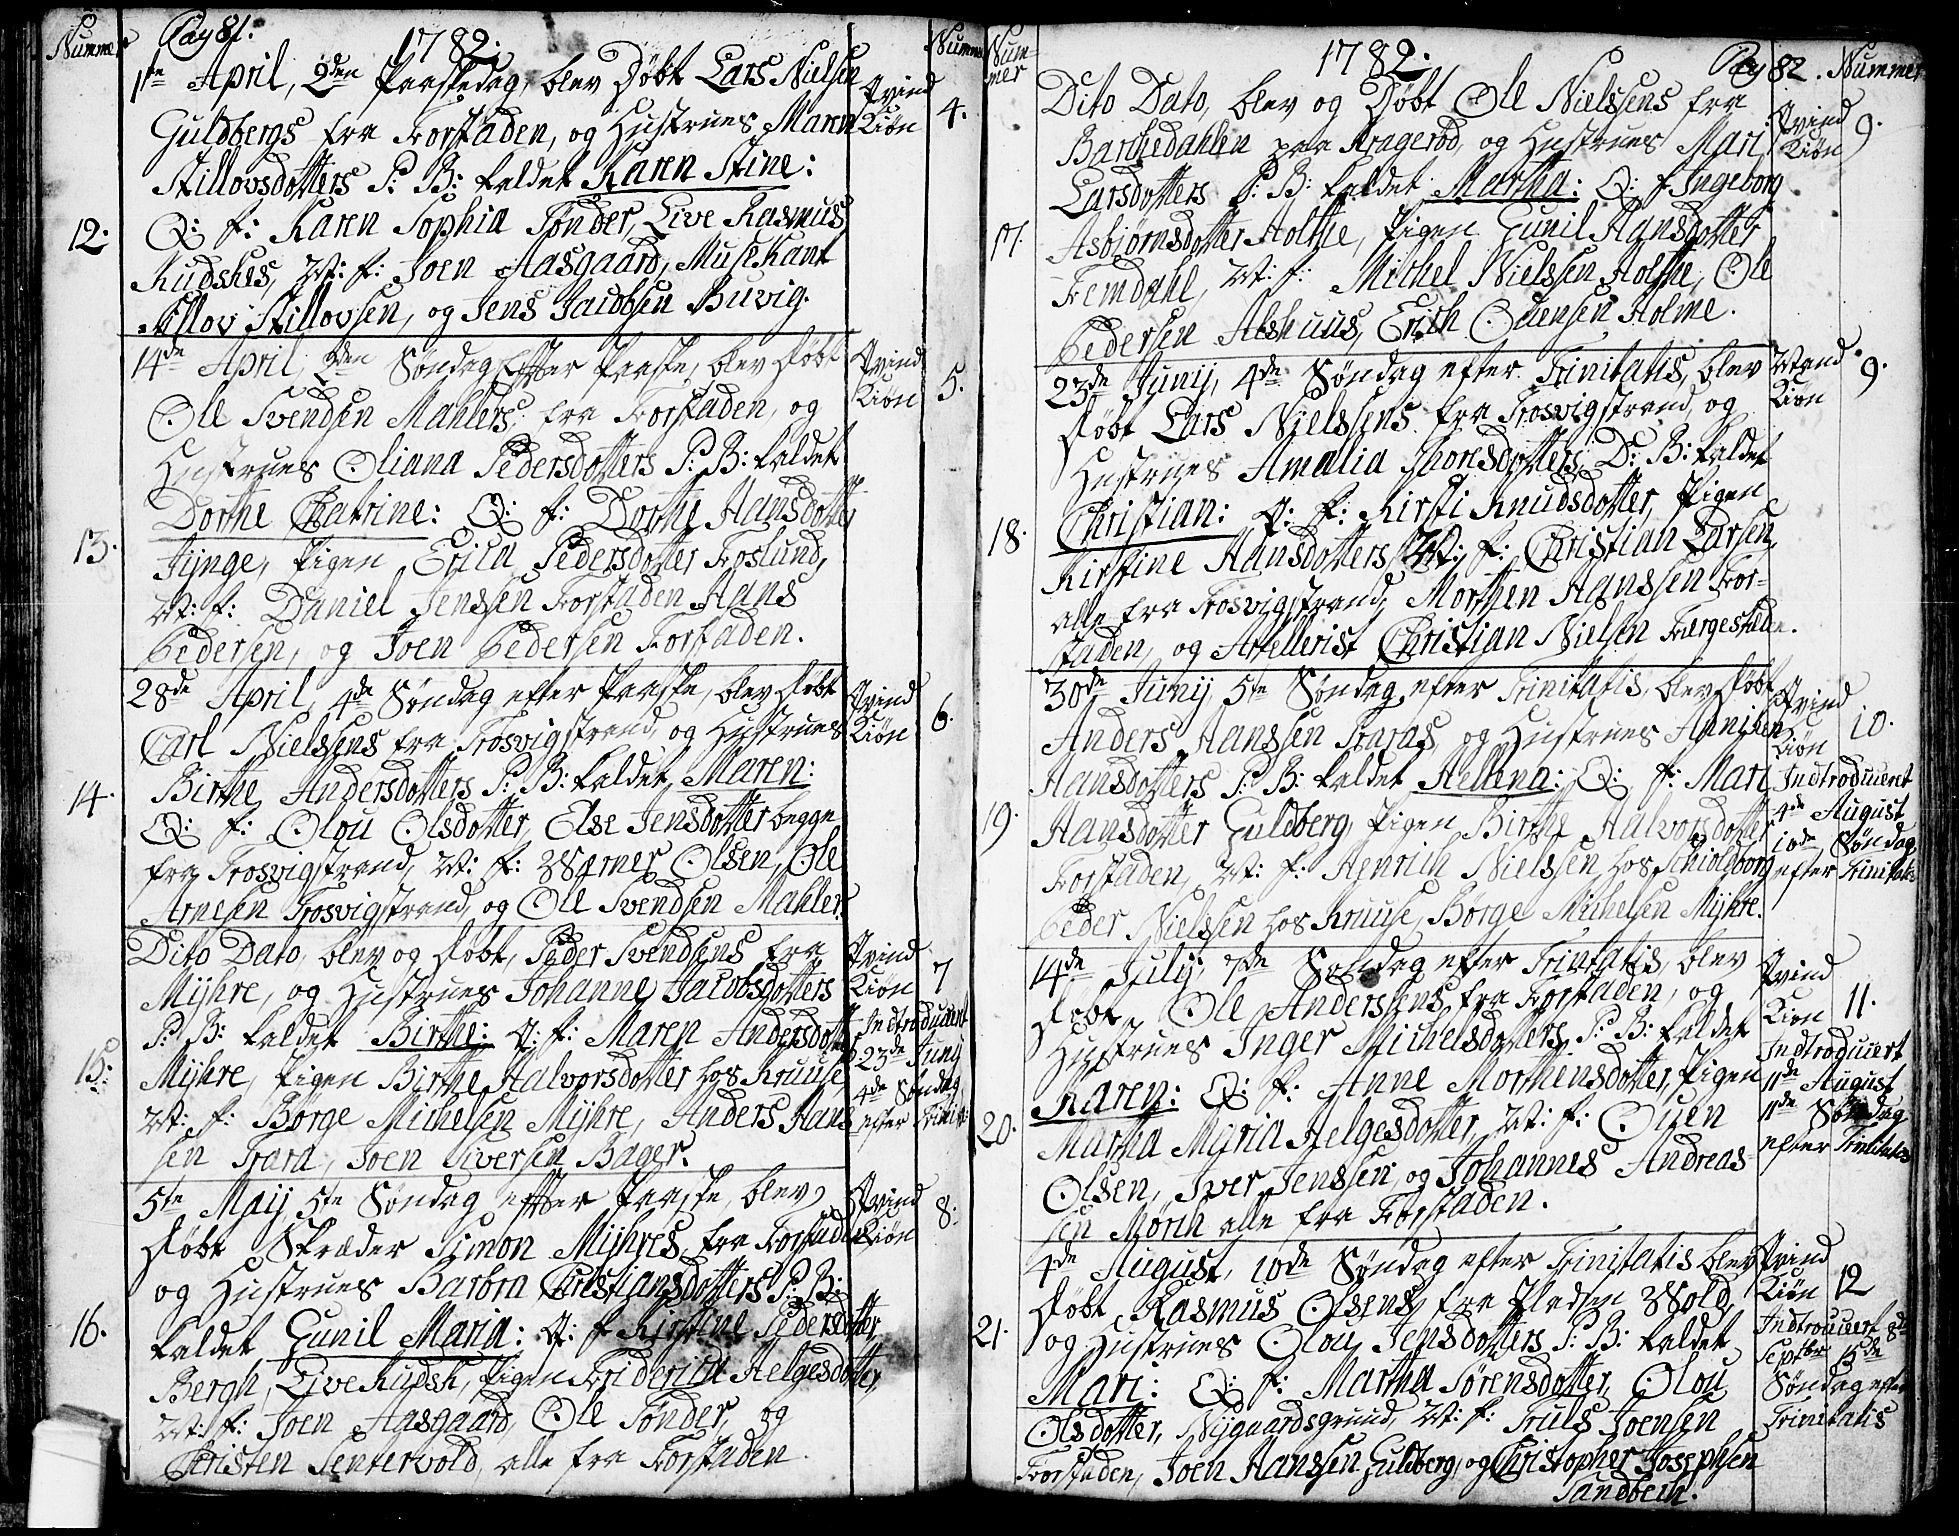 Nummer Pag 81: 1782. Nummer
1ste April, 2den Paaskedag, blev Døbt Lars Nielsen
Guldbergs fra Forstaden, og Hustrues Maren
Stillovsdotters P: B: kaldet Karen Stine:
12. Q: f: Karen Sophia Tønder, Live Rasmus
Rudskes, M: f: Joen Aasgaard, Musekant
Stillov Stillovsen, og Jens Jacobsen Buvig.
Qvind Kiøn 4.
14de April, 2den Søndag Efter Paaske, blev Døbt
Ole Svendsen Mahlers, fra Forstaden, og
Hustrues Oliana Pedersdotters P: B: kaldet
Dorthe Chatrine: Q: f: Dorthe Hansdotter
13. Jynge, Pigen Erica Pedersdotter Foslund,
M: f: Daniel Jenssen Forstaden Hans
Pedersen, og Joen Pedersen Forstaden.
Qvind Kiøn 5.
28de April, 4de Søndag efter Paaske, blev Døbt
Carl Nielssens fra Trosvigstrand, og Hustrues
14. Birthe Andersdotters P: B: kaldet Maren:
Q: f: Olou Olsdotter, Else Jensdotter begge
fra Trosvigstrand, M: f: Werner Olsen, Ole
Arnesen Trosvigstrand, og Ole Svendsen Mahler.
Qvind Kiøn 6.
Dito Dato, blev og Døbt, Peder Svendsens fra
Mijhre, og Hustrues Johanne Jacobsdotters
P: B: kaldet Birthe: Q: f: Maren Andersdotter
15. Mijhre, Pigen Birthe Halvorsdotter hos Kruuse,
M: f: Børge Michelsen Mijhre, Anders Hans
sen Trara, Joen Siversen Bager.
Qvind Kiøn 7
Indtroduceret
23de Junij
4de Søndag
efter Trinit:
5te Maij 5te Søndag efter Paaske, blev
Døbt Skræder Simon Mijhres fra Forstaden
og Hustrues Barbra Christiansdotters P: B:
16. kaldet Gunil Maria: Q: f: Kirstine Pedersdotter
Bergh, Live Rudsk, Pigen Friderica Helgesdotter,
M: f: Joen Aasgaard, Ole Tønder, og
Christen Sentervold, alle fra Forstaden.
Qvind Kiøn 8.
Nummer 1782. Pag 82. Nummer
Dito Dato, blev og Døbt Ole Nielssens fra
Barkedahlen paa Kragerød, og Hustrues Mari
Larsdotters P: B: kaldet Martha: Q: f: Ingeborg
17. Asbjørnsdotter Holthe, Pigen Gunil Hansdotter
Femdahl, M: f: Michel Nielssen Holthe, Ole
Pedersen Alshuus, Erich Ouensen Holme.
Qvind Kiøn 9.
23de Junij, 4de Søndag efter Trinitatis, blev
Døbt Lars Nielssens fra Trosvigstrand, og
Hustrues Amalia Thoresdotters D: B: kaldet
18. Christian: Q: f: Kirsti Knudsdotter, Pigen
Kirstine Hansdotters M: f: Christian Larsen,
alle fra Trosvigstrand, Morthen Hanssen For-
staden, og Artellerist Christian Nielsen Færgestæden.
Mand Kiøn 9.
30de Junij 5te Søndag efter Trinitatis, blev Døbt
Anders Hanssen Traras, og Hustrues Anniken
Hansdotters P: B: kaldet Hellena: Q: f: Mari
19. Hansdotter Guldberg, Pigen Birthe Halvorsdotter
Forstaden, M: f: Henrich Nielssen hos Schioldborg
Peder Nielssen hos Kruuse, Børge Michelsen Mijhre.
Qvind Kiøn 10.
Indtroduceret
4de August
10de Søndag
efter Trinitatis
14de Julij, 7de Søndag efter Trinitatis, blev
Døbt Ole Anderssens fra Forstaden, og
Hustrues Inger Michelsdotters, P: B: kaldet
Karen: Q: f: Anne Morthensdotter, Pigen
20. Martha Maria Helgesdotter, M: f: Ouen
Olsen, Iver Jenssen, og Johannes Andreas
sen Mørch alle fra Forstaden.
Qvind Kiøn 11.
Indtroduiert
11de August
11de Søndag
efter Trinitatis
4de August, 10de Søndag efter Trinitatis blev
Døbt Rasmus Olsens fra Pladsen Wold,
21. og Hustrues Olou Jensdotters P: B: kaldet
Mari: Q: f: Martha Sørensdotter, Olou
Olsdotter, Nygaardsgrund, M: f: Truls Joensen
Forstaden, Joen Hanssen Guldberg, og Christopher Josephsen
Sandbech.
Qvind Kiøn 12
Indtrouuert 8de
Septbr 15de
Søndag efter
Trinitatis